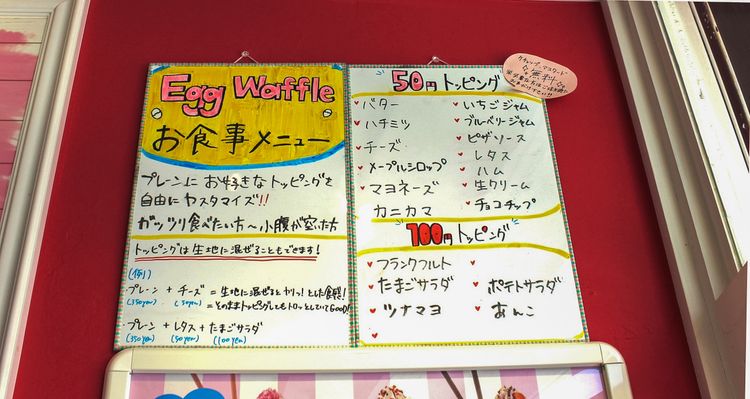 Egg Waffle
お食事メニュー
プレーンに お好きなトッピングを
自由にカスタマイズ!!
ガッツリ食べたい方〜小腹が空いた方
トッピングは生地に混ぜることもできます!
(例)
プレーン + チーズ = 生地に混ぜるとカリッ!とした食感!
(350yen) (50yen) = そのままトッピングしてもトロッとしていてGOOD!
プレーン + レタス + たまごサラダ
(350yen) (50yen) (100yen)
50円トッピング
ケチャップ・マスタード
無料
バター
ハチミツ
チーズ
メープルシロップ
マヨネーズ
カニカマ
いちごジャム
ブルーベリージャム
ピザソース
レタス
ハム
生クリーム
チョコチップ
100円トッピング
フランクフルト
たまごサラダ
ツナマヨ
ポテトサラダ
あんこ